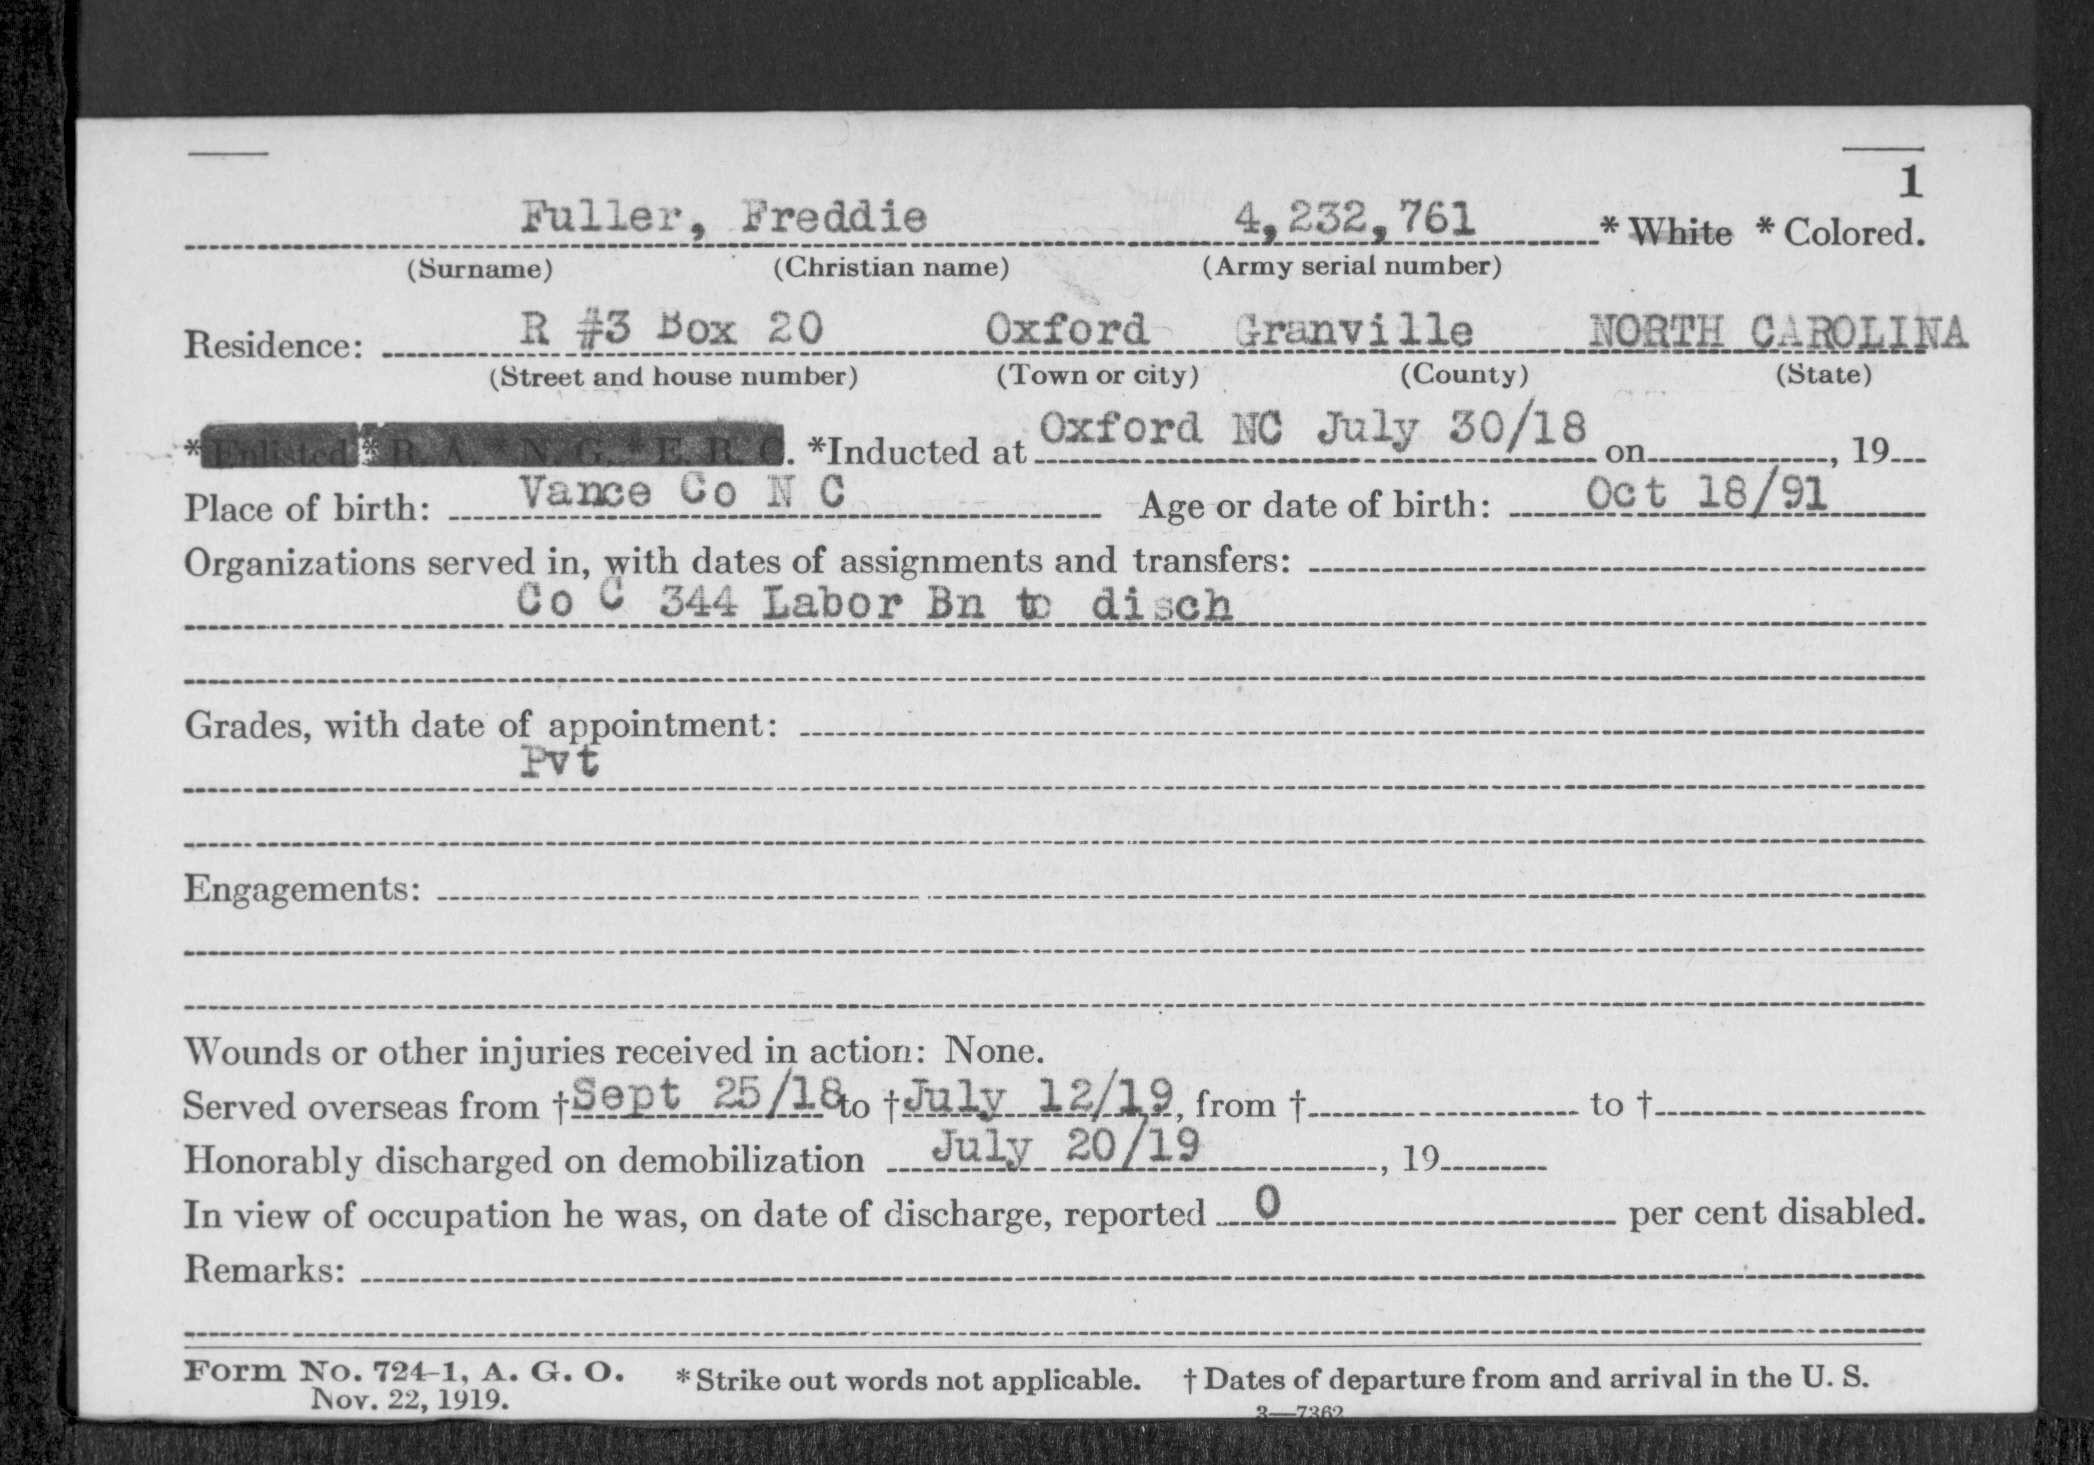 1
Fuller, Freddie 4,232,761 * White * Colored.
(Surname) (Christian name) (Army serial number)
Residence: R #3 Box 20 Oxford Granville NORTH CAROLINA
(Street and house number) (Town or city) (County) (State)
*Enlisted * R. A. * N. G. * E. R. C. *Inducted at Oxford NC July 30/18 on , 19
Place of birth: Vance Co N C Age or date of birth: Oct 18/91
Organizations served in, with dates of assignments and transfers:
Co C 344 Labor Bn to disch
Grades, with date of appointment:
Pvt
Engagements:
Wounds or other injuries received in action: None.
Served overseas from †Sept 25/18 to †July 12/19, from † to †
Honorably discharged on demobilization July 20/19 , 19
In view of occupation he was, on date of discharge, reported 0 per cent disabled.
Remarks:
Form No. 724-1, A. G. O. *Strike out words not applicable. † Dates of departure from and arrival in the U. S.
Nov. 22, 1919.
3—7362